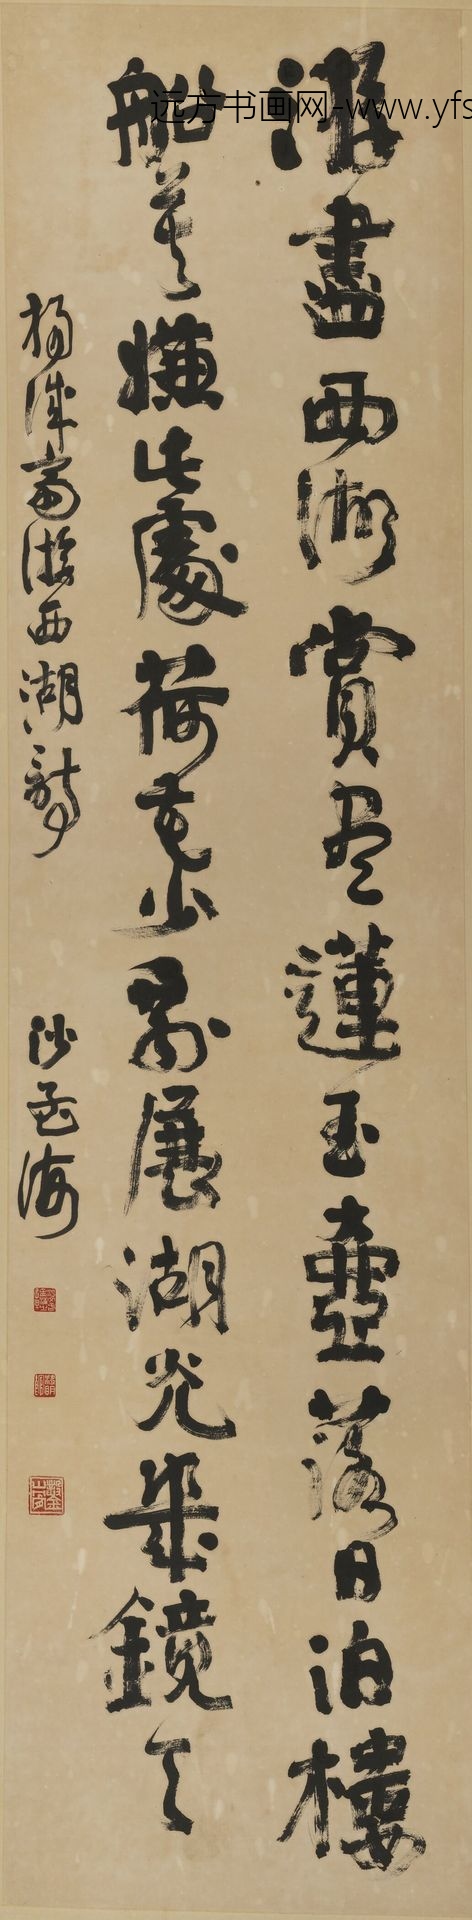 远方书画网-www.yfs
游盡西湖賞尽蓮玉壺落日泊樓
船莫嫌此處荷花少剩展湖光幾鏡天
楊誠齋游西湖詩
沙孟海